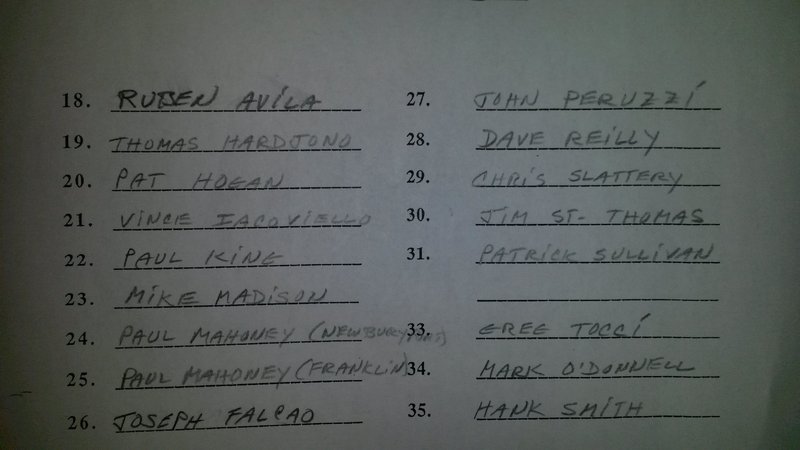 18. RUBEN AVILA
19. THOMAS HARDJONO
20. PAT HOGAN
21. VINCE IACOVIELLO
22. PAUL KING
23. MIKE MADISON
24. PAUL MAHONEY (NEWBURYPORT)
25. PAUL MAHONEY (FRANKLIN)
26. JOSEPH FALCAO
27. JOHN PERUZZI
28. DAVE REILLY
29. CHRIS SLATTERY
30. JIM ST- THOMAS
31. PATRICK SULLIVAN
33. GREG TOCCI
34. MARK O'DONNELL
35. HANK SMITH